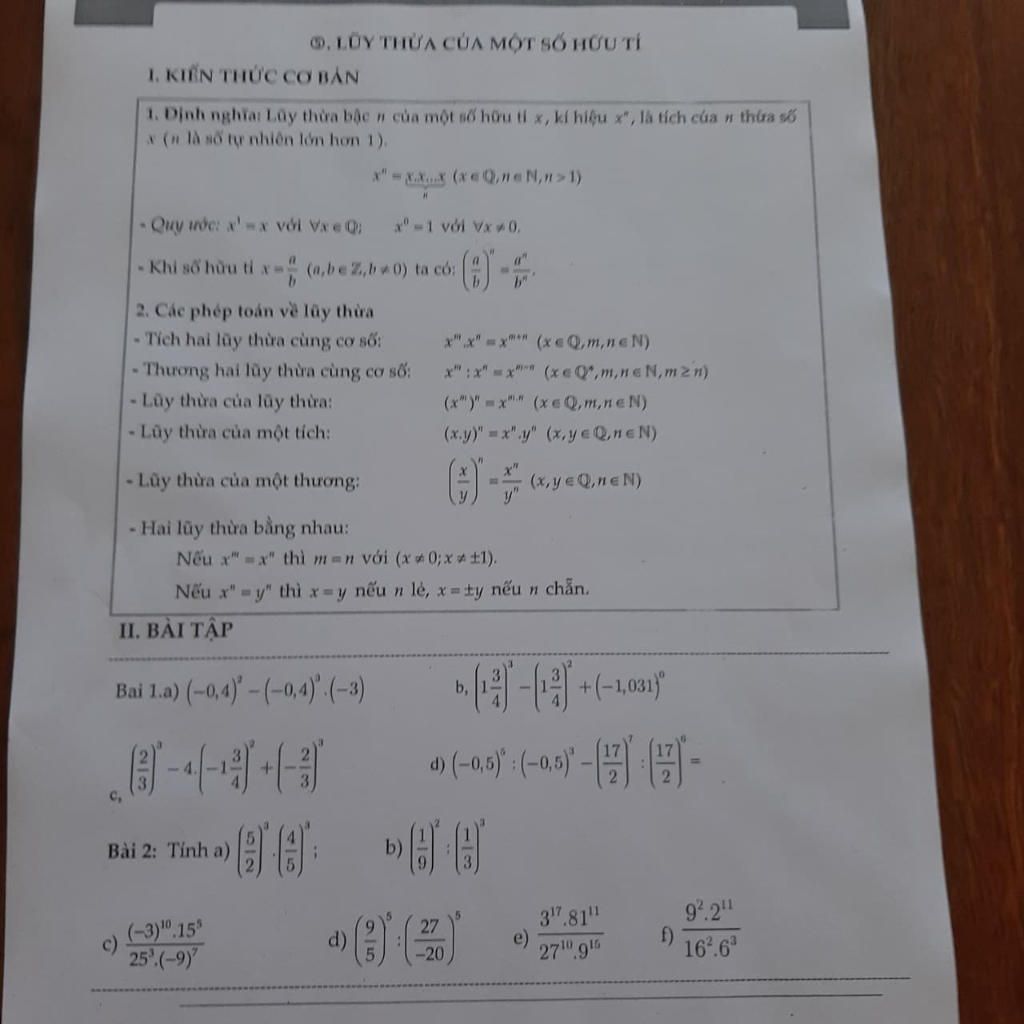 ⑤. LŨY THỪA CỦA MỘT SỐ HỮU TỈ
I. KIẾN THỨC CƠ BẢN
1. Định nghĩa: Lũy thừa bậc n của một số hữu tỉ x, kí hiệu xⁿ, là tích của n thừa số
x (n là số tự nhiên lớn hơn 1).
xⁿ = x.x...x (x ∈ ℚ, n ∈ ℕ, n > 1)
n
- Quy ước: x¹ = x với ∀x ∈ ℚ; x⁰ = 1 với ∀x ≠ 0.
- Khi số hữu tỉ x = a/b (a, b ∈ ℤ, b ≠ 0) ta có: (a/b)ⁿ = aⁿ/bⁿ.
2. Các phép toán về lũy thừa
- Tích hai lũy thừa cùng cơ số: xᵐ.xⁿ = xᵐ⁺ⁿ (x ∈ ℚ, m, n ∈ ℕ)
- Thương hai lũy thừa cùng cơ số: xᵐ : xⁿ = xᵐ⁻ⁿ (x ∈ ℚ*, m, n ∈ ℕ, m ≥ n)
- Lũy thừa của lũy thừa: (xᵐ)ⁿ = xᵐ·ⁿ (x ∈ ℚ, m, n ∈ ℕ)
- Lũy thừa của một tích: (x.y)ⁿ = xⁿ.yⁿ (x, y ∈ ℚ, n ∈ ℕ)
- Lũy thừa của một thương: (x/y)ⁿ = xⁿ/yⁿ (x, y ∈ ℚ, n ∈ ℕ)
- Hai lũy thừa bằng nhau:
Nếu xᵐ = xⁿ thì m = n với (x ≠ 0; x ≠ ±1).
Nếu xⁿ = yⁿ thì x = y nếu n lẻ, x = ±y nếu n chẵn.
II. BÀI TẬP
Bai 1.a) (−0,4)² − (−0,4)³.(−3) b, (1 3/4)³ − (1 3/4)² + (−1,031)⁰
c, (2/3)³ − 4.(−1 3/4)² + (−2/3)³ d) (−0,5)⁵ : (−0,5)³ − (17/2)⁷ : (17/2)⁶ =
Bài 2: Tính a) (5/2)³.(4/5)³; b) (1/9)² : (1/3)³
c) (−3)¹⁰.15⁵/25³.(−9)⁷ d) (9/5)⁵ : (27/−20)⁵ e) 3¹⁷.81¹¹/27¹⁰.9¹⁵ f) 9².2¹¹/16².6³